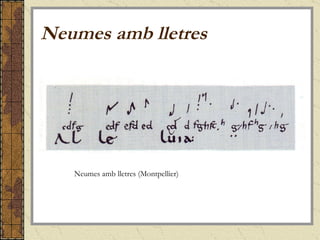 Neumes amb lletres
cdfg cdf efd ed cd d fghfc h g hf g hg
AL Le Luia:
Neumes amb lletres (Montpellier)